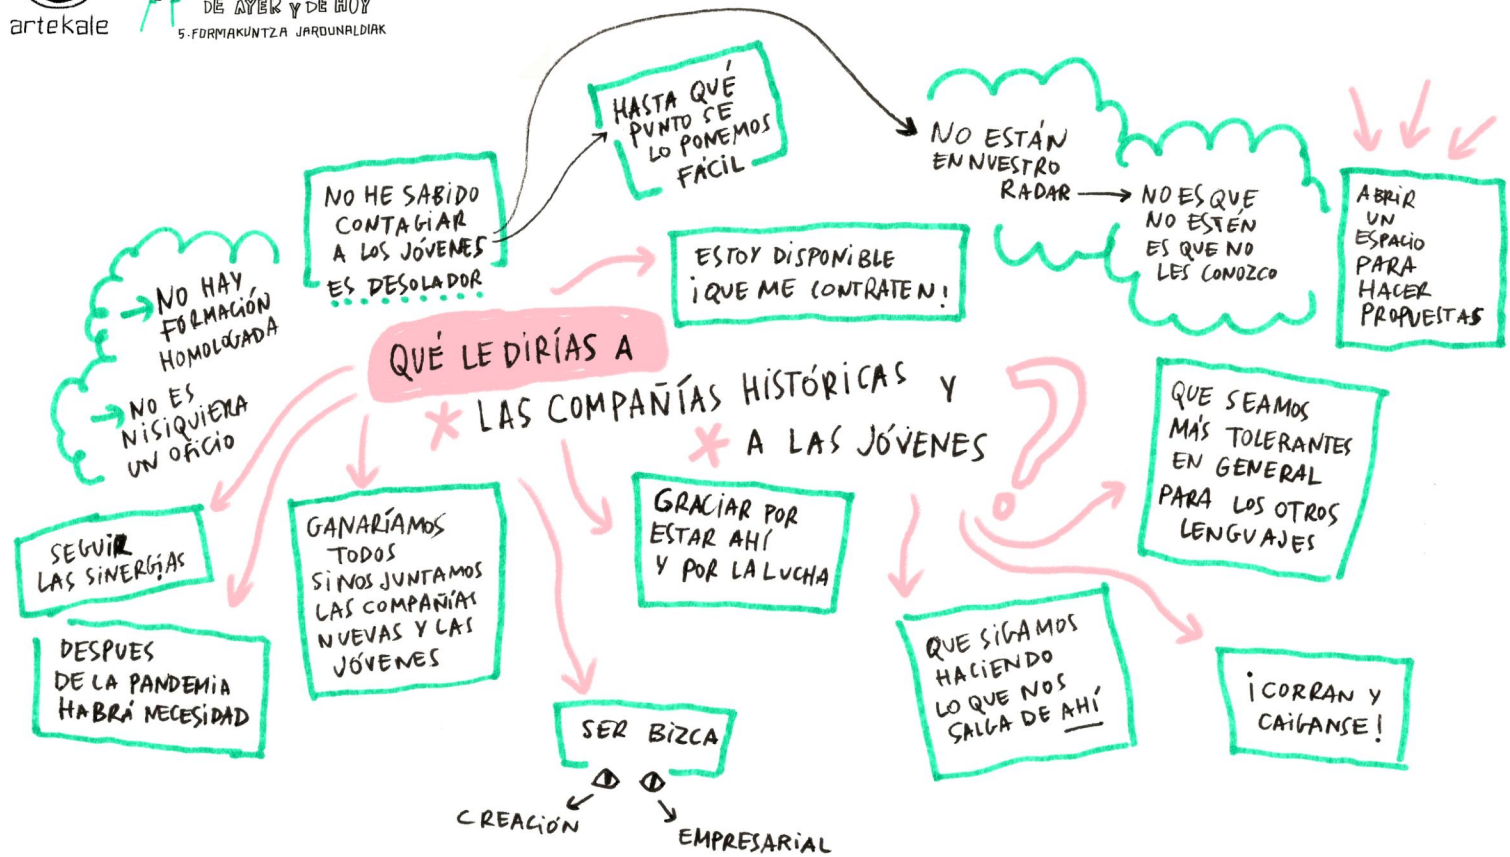 artekale
DE AYER Y DE HOY
5. FORMAKUNTZA JARDUNALDIAK
HASTA QUÉ
PUNTO SE
LO PONEMOS
FÁCIL
NO ESTÁN
EN NUESTRO
RADAR
NO ES QUE
NO ESTÉN
ES QUE NO
LES CONOZCO
ABRIR
UN
ESPACIO
PARA
HACER
PROPUESTAS
NO HE SABIDO
CONTAGIAR
A LOS JÓVENES
ES DESOLADOR
ESTOY DISPONIBLE
¡QUE ME CONTRATEN!
NO HAY
FORMACIÓN
HOMOLOGADA
NO ES
NISIQUIERA
UN OFICIO
QUÉ LE DIRÍAS A
* LAS COMPAÑÍAS HISTÓRICAS Y
* A LAS JÓVENES ?
QUE SEAMOS
MÁS TOLERANTES
EN GENERAL
PARA LOS OTROS
LENGUAJES
SEGUIR
LAS SINERGIAS
DESPUES
DE LA PANDEMIA
HABRÁ NECESIDAD
GANARÍAMOS
TODOS
SI NOS JUNTAMOS
LAS COMPAÑÍAS
NUEVAS Y LAS
JÓVENES
GRACIAR POR
ESTAR AHÍ
Y POR LA LUCHA
QUE SIGAMOS
HACIENDO
LO QUE NOS
SALGA DE AHÍ
¡CORRAN Y
CAIGANSE!
SER BIZCA
CREACIÓN
EMPRESARIAL